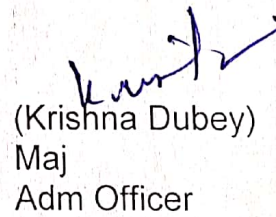 (Krishna Dubey)
Maj
Adm Officer